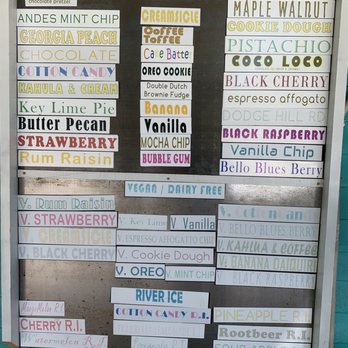 chocolate pretzel
ANDES MINT CHIP
GEORGIA PEACH
CHOCOLATE
COTTON CANDY
KAHULA & CREAM
Key Lime Pie
Butter Pecan
STRAWBERRY
Rum Raisin
CREAMSICLE
COFFEE TOFFEE
Cake Batter
OREO COOKIE
Double Dutch
Brownie Fudge
Banana
Vanilla
MOCHA CHIP
BUBBLE GUM
MAPLE WALNUT
COOKIE DOUGH
PISTACHIO
COCO LOCO
BLACK CHERRY
espresso affogato
DODGE HILL RD
BLACK RASPBERRY
Vanilla Chip
Bello Blues Berry
VEGAN / DAIRY FREE
V. Rum Raisin
V. STRAWBERRY
V. CREAMSICLE
V. BLACK CHERRY
V. Key Lime
V. Vanilla
V. ESPRESSO AFFOGATO CHIP
V. Cookie Dough
V. OREO
V. MINT CHIP
V. Cotton Candy
V. BELLO BLUES BERRY
V. KAHULA & COFFEE
V. BANANA DAIQUIRI
V. BLACK RASPBERRY
RIVER ICE
COTTON CANDY R.I.
CHERRY R.I.
Watermelon R.I.
PINEAPPLE R.I.
Rootbeer R.I.